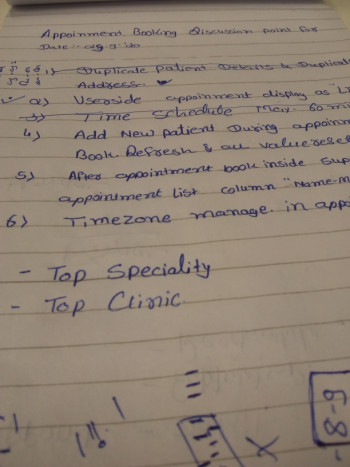 Appoinment Booking Discussion point for
Date:
1) Duplicate patient Detects & Duplicate
Address ✓
2) Userside appoinment display as
3) Time Schedule Max. 60 min
4) Add New patient During appoinm
Book Refresh & all value reset
5) After appointment book inside sup
appointment list column "Name-M
6) Timezone manage in appo
- Top Speciality
- Top Clinic
6-8-